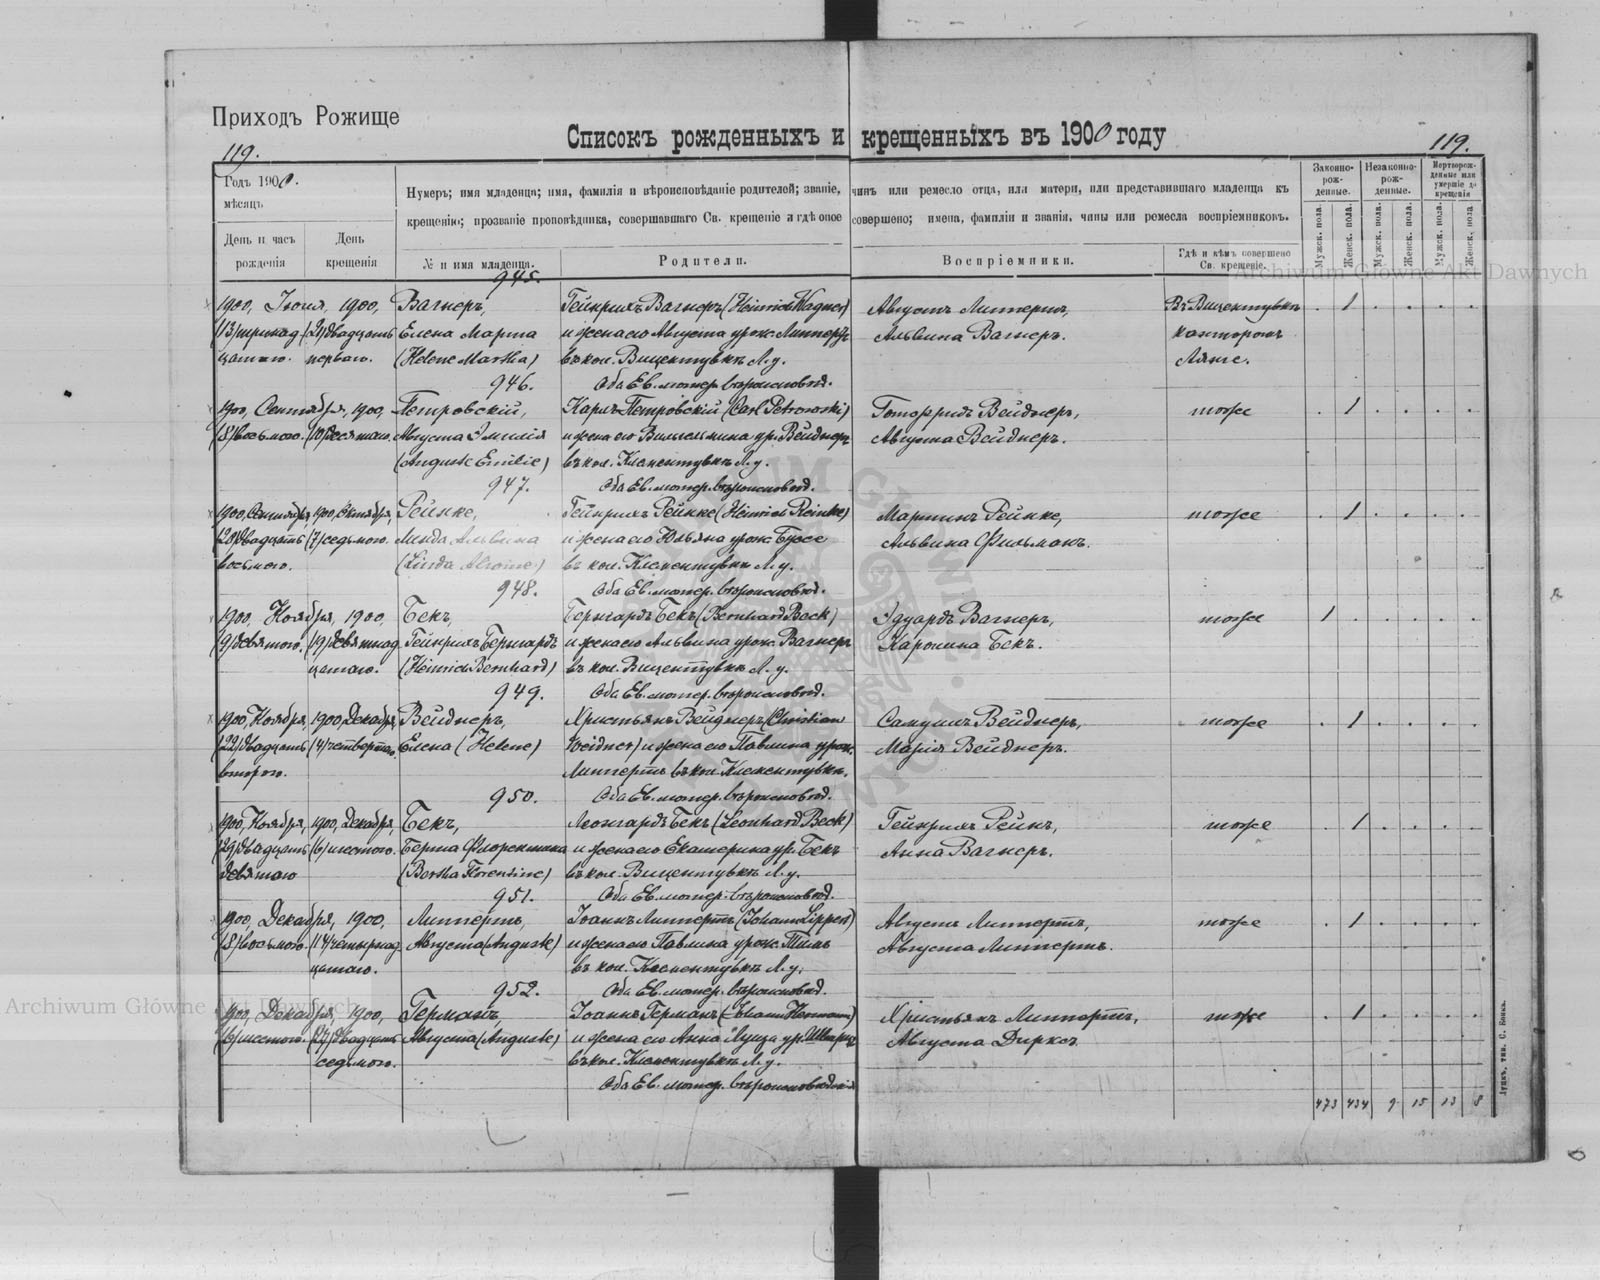 Приходъ Рожище
Списокъ рожденныхъ и крещенныхъ въ 1900 году
119.
119.
Годъ 1900.
мѣсяцъ
День и часъ рожденія
День крещенія
Нумеръ; имя младенца; имя, фамилія и вѣроисповѣданіе родителей; званіе, чинъ или ремесло отца, или матери, или представившаго младенца къ
крещенію; прозваніе проповѣдника, совершавшаго Св. крещеніе и гдѣ оное совершено; имена, фамиліи и званія, чины или ремесла воспріемниковъ.
№ и имя младенца.
Родители.
Воспріемники.
Гдѣ и кѣмъ совершено Св. крещеніе.
Законно-рож-денные.
Незаконно-рож-денные.
Мертворож-денные или умершіе до крещенія
Мужск. пола.
Женск. пола.
Мужск. пола.
Женск. пола.
Мужск. пола.
Женск. пола
Archiwum Główne Akt Dawnych
945.
1900, Іюня, 1900, Вагнеръ, Гейнрихъ Вагнеръ (Heinrich Wagner) Августъ Липпертъ, Въ Вицентувкѣ . 1 . . . .
(13) тринад (21) двадцать Елена Марта и жена его Августа урож. Липпертъ Альвина Вагнеръ. канторомъ
цатаго. перваго. (Helene Martha) въ кол. Вицентувкѣ Л. у. Ляше.
Оба Ев. лютер. вѣроисповѣд.
946.
1900, Сентября, 1900, Петровскій, Карлъ Петровскій (Carl Petrowski) Готфридъ Вейднеръ, тоже . 1 . . . .
(8) восьмого. (10) десятаго. Августа Эмилія и жена его Вильгельмина ур. Вейднеръ Августа Вейднеръ.
(Auguste Emilie) въ кол. Клементувкѣ Л. у.
Оба Ев. лютер. вѣроисповѣд.
947.
1900, Сентября, 1900, Октября, Рейнке, Гейнрихъ Рейнке (Heinrich Reinke) Мартинъ Рейнке, тоже . 1 . . . .
(28) двадцать (7) седьмого. Линда Альвина и жена его Юльяна урож. Буссе Альвина Фильманъ.
восьмого. (Linda Alwine) въ кол. Клементувкѣ Л. у.
Оба Ев. лютер. вѣроисповѣд.
948.
1900, Ноября, 1900, Бекъ, Бернгардъ Бекъ (Bernhard Beck) Эдуардъ Вагнеръ, тоже 1 . . . . .
(9) девятого. (19) девятнад Гейнрихъ Бернгардъ и жена его Альвина урож. Вагнеръ Каролина Бекъ.
цатаго. (Heinrich Bernhard) въ кол. Вицентувкѣ Л. у.
Оба Ев. лютер. вѣроисповѣд.
949.
1900, Ноября, 1900, Декабря, Вейднеръ, Христьянъ Вейднеръ (Christian Самуилъ Вейднеръ, тоже . 1 . . . .
(22) двадцать (4) четвертаго. Елена (Helene) Weidner) и жена его Павлина урож. Марія Вейднеръ.
второго. Липпертъ въ кол. Клементувкѣ.
Оба Ев. лютер. вѣроисповѣд.
950.
1900, Ноября, 1900, Декабря, Бекъ, Леонгардъ Бекъ (Leonhard Beck) Гейнрихъ Рейнъ, тоже . 1 . . . .
(29) двадцать (6) шестого. Берта Флорентина и жена его Екатерина ур. Бекъ Анна Вагнеръ.
девятаго (Bertha Florentine) въ кол. Вицентувкѣ Л. у.
Оба Ев. лютер. вѣроисповѣд.
951.
1900, Декабря, 1900, Липпертъ, Іоаннъ Липпертъ (Johann Lippert) Августъ Липпертъ, тоже . 1 . . . .
(8) восьмого. (14) четырнад Августа (Auguste) и жена его Павлина урож. Тимъ Августа Липпертъ.
цатаго. въ кол. Клементувкѣ Л. у.
Оба Ев. лютер. вѣроисповѣд.
952.
1900, Декабря, 1900, Германъ, Іоаннъ Германъ (Johann Hermann) Христьянъ Липпертъ, тоже . 1 . . . .
(16) шестого. (27) двадцать Августа (Auguste) и жена его Анна Луиза ур. Августа Дирксъ
седьмого. въ кол. Клементувкѣ Л. у.
Оба Ев. лютер. вѣроисповѣданія
473 434 9 15 13 8
Луцкъ, тип. С. Бонка.
Archiwum Główne Akt Dawnych